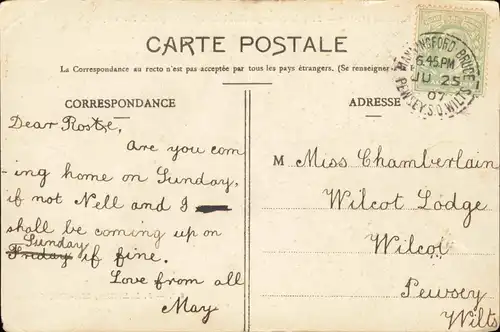 CARTE POSTALE
La Correspondance au recto n'est pas acceptée par tous les pays étrangers. (Se renseigner
CORRESPONDANCE
ADRESSE
MANNINGFORD-BRUCE
6.45 PM
JU 25
07
PEWSEY S.O. WILTS
Dear Rose,
Are you com
-ing home on Sunday,
if not Nell and I
shall be coming up on
Sunday
Friday if fine.
Love from all
May
M Miss Chamberlain
Wilcot Lodge
Wilcot
Pewsey
Wilts